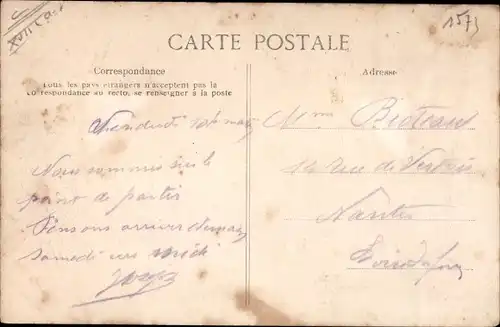 1573
CARTE POSTALE
Correspondance
Tous les pays étrangers n'acceptent pas la
correspondance au recto, se renseigner à la poste
Vendredi
Nous sommes sur le
point de partir
Pensons arriver demain
samedi vers midi
Adresse
Mme
14 rue de
Nantes
Loire Infre